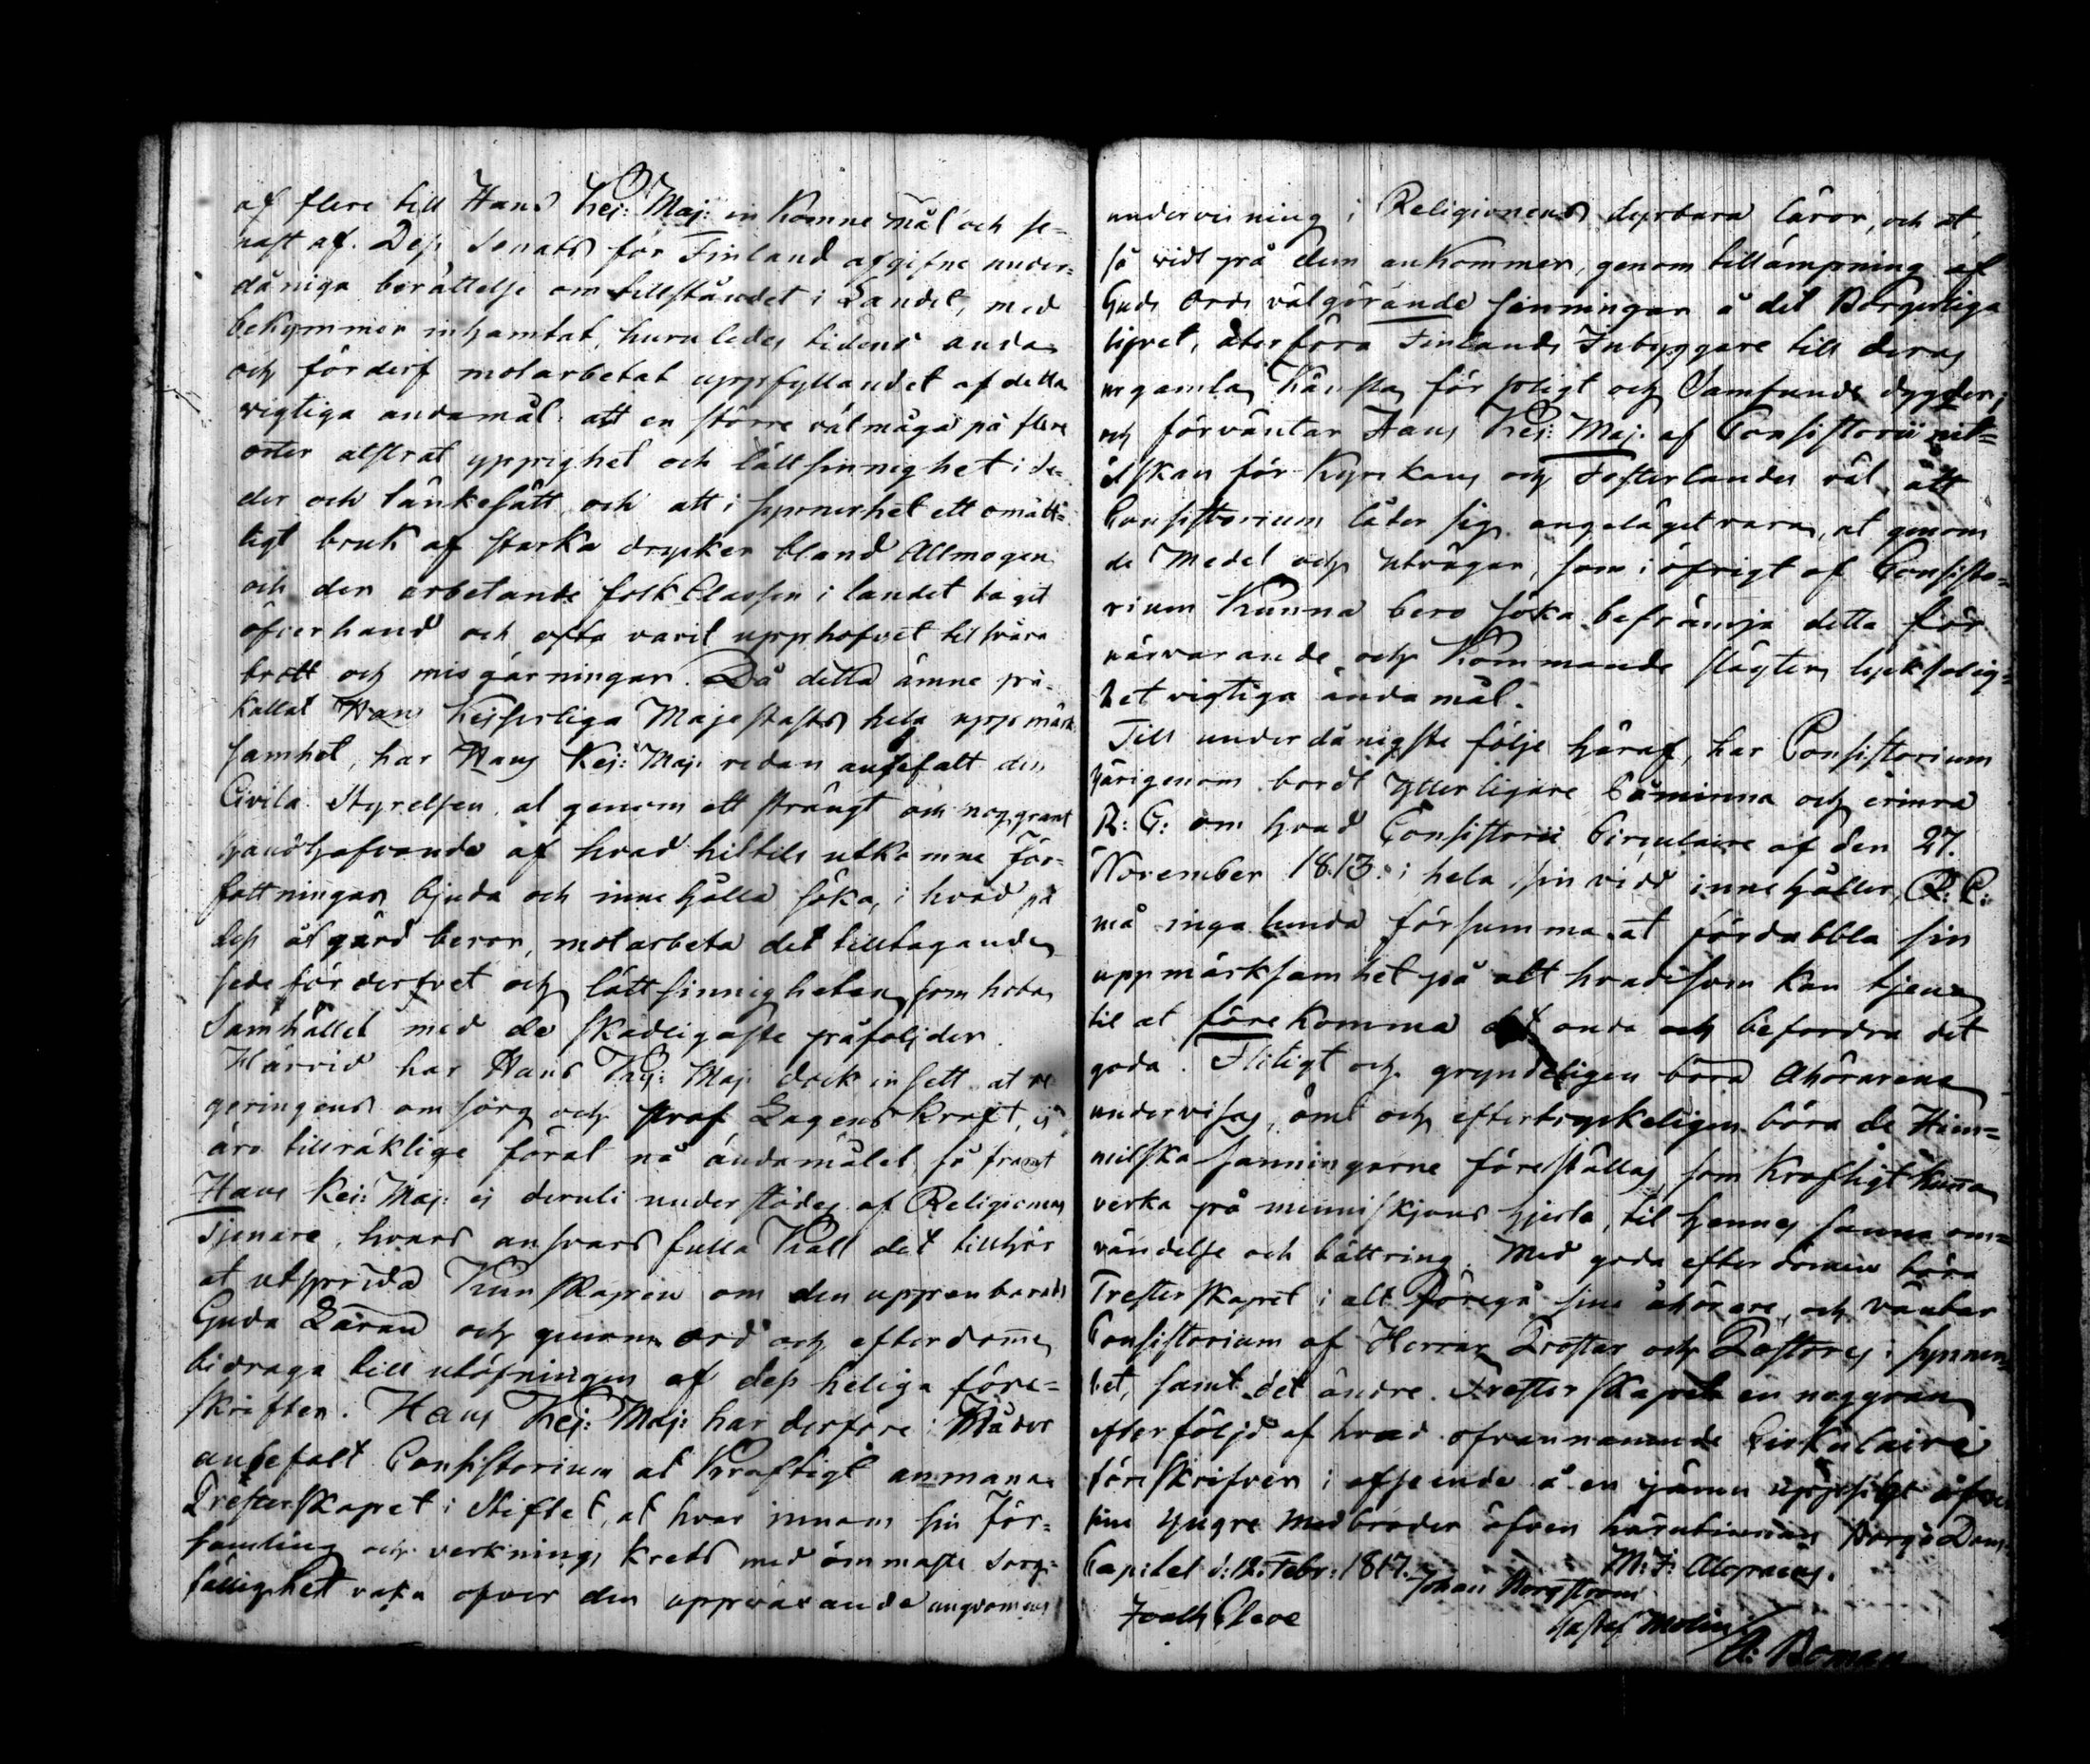 af flere till Hans Kej: Maj: in komne mål och se-
nast af Dess Senats för Finland afgifne under-
dåniga berättelse om tillståndet i Landet, med
bekymmer inhamtat, huruledes tidens anda
och förderf motarbetat uppfyllandet af detta
vigtiga andamål: att en större välmåga på flere
orter alstrat yppighet och lättsinnighet i se-
der och tänkesätt, och att i synnerhet ett omått-
ligt bruk af starka drycker bland Allmogen
och den arbetande folk Classen i landet taget
öfverhand och ofta varit upphofvet till svåra
brott och misgärningar. Då detta ämne på-
kallat Hans Kejserliga Majestäts hela uppmärk
samhet, har Hans Kej: Maj: redan anbefalt den
Civila Styrelsen, at genom ett strängt och noggrant
handhafvande af hvad hittils utkomne För-
fattningar bjuda och innehålla söka, i hvad på
dess åtgärd beror, motarbeta det tilltagande
sedeförderfvet och lättsinnigheten, som hota
Samhället med de skadligaste påfoljder.
Härvid har Hans Kej: Maj: dock insett at re
geringens omsorg och straf Lagens kraft, ej
äro tillräklige förat nå ändamålet, så framt
Hans Kej: Maj: ej deruti understödes af Religionens
Tjenare, hvars ansvars fulla Kall det tillhör
at utsprida Kunskapen om den uppenbarade
Guda Läran och genom ord och efterdöme
bidraga till utöfningen af dess heliga före-
skrifter. Hans Kej: Maj: har derföre i Nåder
anbefalt Consistorium at Kraftigt anmana
Presterskapet i Stiftet, at hvar innom sin För-
samling och verknings krets med ömmaste Sorg-
fällighet vaka öfver den uppväxande ungdomens
undervisning i Religionens dyrbara läror, och at,
så vidt på dem ankommer, genom tillämpning af
Guds Ords välgörande sanningar å det Borgerliga
lifvet, återföra Finlands Inbyggare till deras
urgamla känsla för pligt och Samfunds dygder;
och förväntar Hans Kej: Maj: af Consistorii nit-
älskan för Kyrkans och Fosterlandes väl, att
Consistorium låter sig angeläget vara, at genom
de Medel och utvägar, som i öfrigt af Consisto-
rium Kunna bero söka befrämja detta för
närvarande och Kommande slägters lycksalig-
het vigtiga ändamål.
Till underdånigste följe häraf, har Consistorium
härigenom bordt ytterligare Påminna och erinra
R: C: om hvad Consistorii Circulaire af den 27.
November 1813. i hela sin vidd innehåller, R: C:
må ingalunda försumma at fördubbla sin
uppmärksamhet på alt hvad som kan tjena
til at förekomma det onda och befordra det
goda. Flitigt och gryndeligen böra Åhörarene
undervisas, ömt och eftertryckeligen böra de Him-
melska sanningarne föreställas, som kraftigt kunna
verka på menniskjans hjerta, til hennes sanna om-
vändelse och bättring. Med goda efterdömen böra
Presterskapet i alt föregå sina åhörare, och väntar
Consistorium af Herrar Prostar och Pastorer i synner-
het, samt det andre Presterskapet en noggran
efterföljd af hvad ofvannämnde Cirkulaire
föreskrifver i afseende å en jämn uppsigt äfven
sine yngre Medbröder öfven härutinnan Borgå Dom
Capitel d: 12. Febr: 1817.
M: F: Alopæus.
Johan Borgstrom
Gustaf Molin
A: Boman